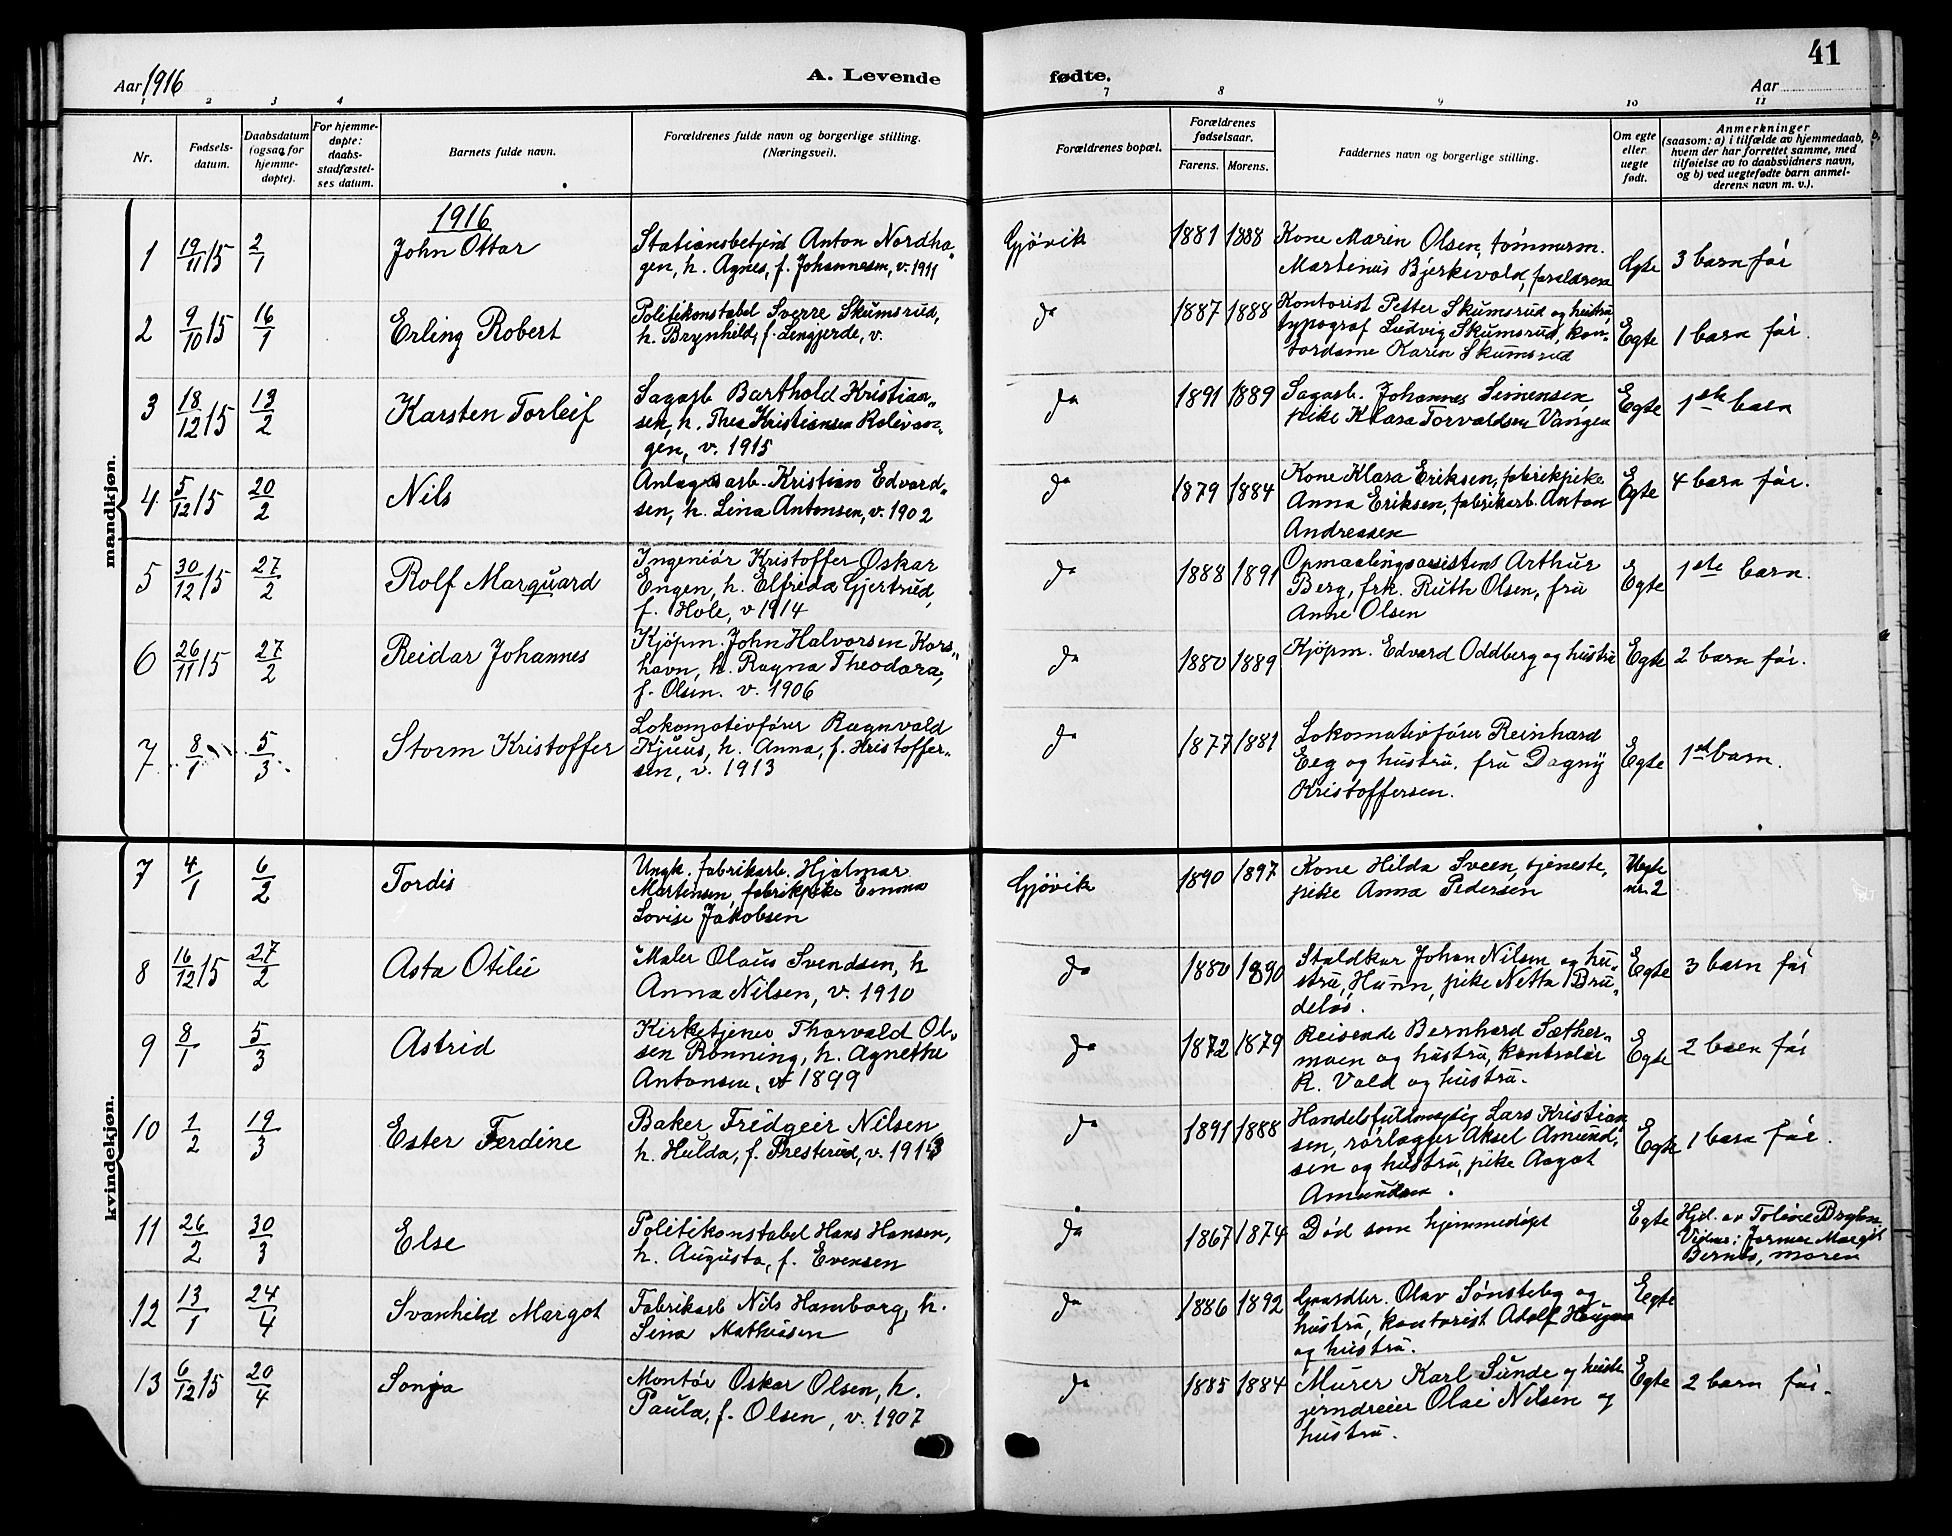 Aar 1916
A. Levende
fødte.
41
Aar
1 2 3 4 7 8 9 10 11
Nr.
Fødsels-
datum.
Daabsdatum
(ogsaa for
hjemme-
døpte).
For hjemme-
døpte:
daabs-
stadfæstel-
ses datum.
Barnets fulde navn.
Forældrenes fulde navn og borgerlige stilling.
(Næringsvei).
Forældrenes bopæl.
Forældrenes
fødselsaar.
Farens. Morens.
Faddernes navn og borgerlige stilling.
Om egte
eller
uegte
født.
Anmerkninger
(saasom: a) i tilfælde av hjemmedaab,
hvem der har forrettet samme, med
tilføielse av to daabsvidners navn,
og b) ved uegtefødte barn anmel-
derens navn m. v.).
mandkjøn.
1916
1 19/11 15 2/1 John Ottar
Stationsbetjent Anton Nordha„
gen, h. Agnes, f. Johannesen, v. 1911
Gjövik 1881 1888
Kone Marin Olsen, tömmerm.
Martinus Bjerkevold, forældrene
Egte 3 barn för
2 9/10 15 16/1 Erling Robert
Politikonstabel Sverre Skumsrud,
h. Brynhild, f. Lengjerde, v.
do 1887 1888
Kontorist Petter Skumsrud og hustru,
typograf Ludvig Skumsrud, kon-
tordame Karen Skumsrud
Egte 1 barn før.
3 18/12 15 13/2 Karsten Torleif
Sagarb Barthold Kristian„
sen, h. Thea Kristiansen
gen, v. 1915
do 1891 1889
Sagarb. Johannes Simensen,
pike Klara Torvaldsen Vangen
Egte 1ste barn
4 5/12 15 20/2 Nils
Anlægsarb. Kristian Edvard„
sen, h. Lina Antonsen, v. 1902
do 1879 1884
Kone Klara Eriksen, fabrikpike
Anna Eriksen, fabrikarb. Anton
Andreassen
Egte 4 barn før.
5 30/12 15 27/2 Rolf Marquard
Ingeniör Kristoffer Oskar
Engen, h. Elfrida Gjertrud,
f. Hole, v 1914
do 1888 1891
Opmaalingsassistent Arthur
Berg, frk. Ruth Olsen, fru
Anne Olsen
Egte 1ste barn.
6 26/11 15 27/2 Reidar Johannes
Kjöpm. John Halvorsen Kors„
havn, h. Ragna Theodora,
f. Olsen. v. 1906
do 1880 1889
Kjöpm. Edvard Oddberg og hustru
Egte 2 barn för.
7 8/1 5/3 Storm Kristoffer
Lokomotivförer Ragnvald
Kjuus, h. Anna, f. Kristoffer„
sen, v. 1913
do 1877 1881
Lokomotivförer Reinhard
Eeg og hustru, fru Dagny
Kristoffersen.
Egte 1ste barn.
kvindekjøn.
7 4/1 6/2 Tordis
Ungk. fabrikarb. Hjalmar
Martinsen, fabrikpike Emma
Lovise Jakobsen
Gjövik 1890 1897
Kone Hilda Sveen, tjeneste,
pike Anna Pedersen
Uegte
nr. 2
8 16/12 15 27/2 Asta Otilie
Maler Olaus Svendsen, h
Anna Nilsen, v. 1910
do 1880 1890
Staldkar Johan Nilsen og hu„
stru, Hunn, pike Netta Bru„
delös.
Egte 3 barn för
9 8/1 5/3 Astrid
Kirketjener Thorvald Ol„
sen Rönning, h. Agnethe
Antonsen, v. 1899
do 1872 1879
Reisende Bernhard Sæther„
moen og hustru, kontrolör
R. Vold og hustru.
Egte 2 barn för
10 1/2 19/3 Ester Ferdine
Baker Fridgeir Nilsen
h. Hulda, f. Presterud, v. 1913
do 1891 1888
Handelsfuldmægtig Lars Kristian
sen, rörlægger Aksel Amund„
sen og hustru, pike Aagot
Amundsen.
Egte 1 barn för.
11 26/2 30/3 Else
Politikonstabel Hans Hansen,
h. Augusta, f. Evensen
do 1867 1874
Död som hjemmedöpt
Egte Hjd. av Toline
Vidner: Jormor Margit
Bernes, moren
12 13/1 24/4 Svanhild Margot
Fabrikarb Nils Hamborg, h.
Lina Mathisen
do 1886 1892
Gaardbr. Olav Sønsteby og
hustru, kontorist Adolf Haugen
og hustru.
Egte
13 6/12 15 20/4 Sonja
Montör Oskar Olsen, h.
Paula, f. Olsen, v. 1907
do 1885 1884
Murer Karl Sunde og hustru
jerndreier Olai Nilsen og
hustru.
Egte 2 barn för.